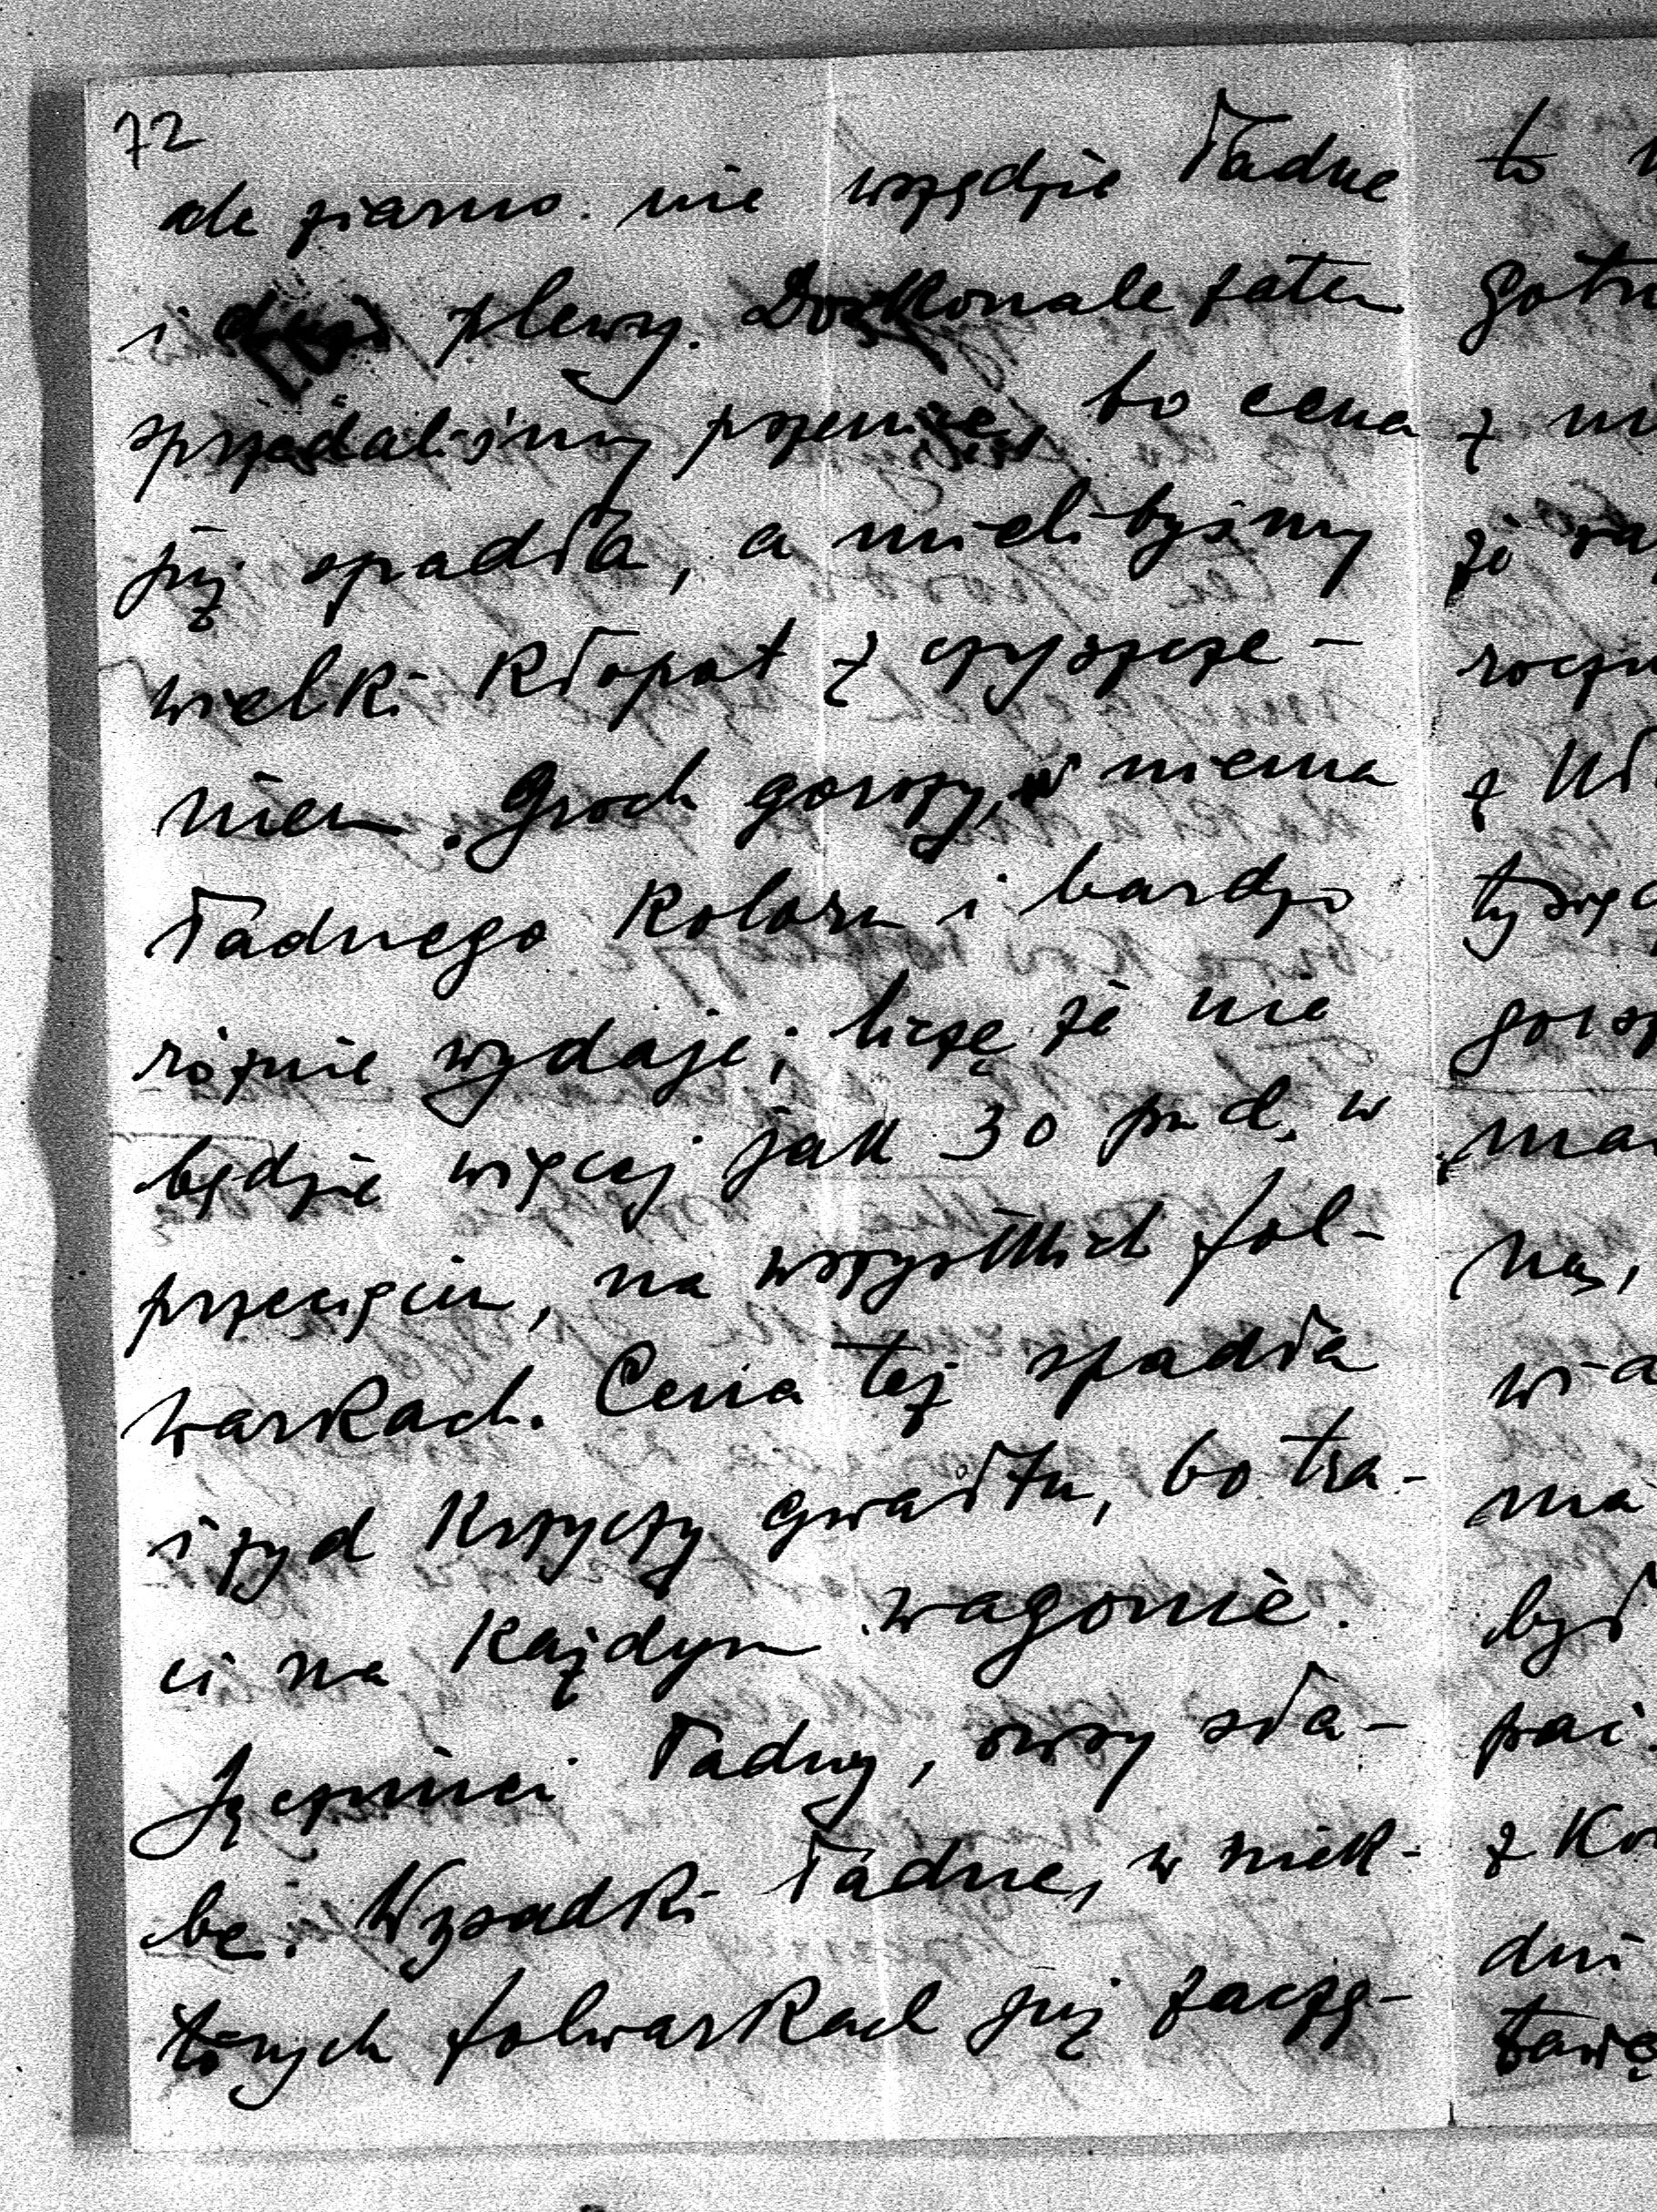 72
ale ziarno nie wszędzie ładne
i dużo plewy. Doskonale zatem
sprzedaliśmy pszenicę, bo cena
już spadła, a mielibyśmy
wielki kłopot z czyszcze-
niem. Groch gorszy, niema
ładnego koloru i bardzo
różnie wydaje; liczę że nie
będzie więcej jak 30 pud. w
przecięciu, na wszystkich fol-
warkach. Cena też spadła
i żyd krzyczy gwałtu, bo tra-
ci na każdym wagonie.
Jęczmień ładny, owsy sła-
be. Wysadki ładne, w niek-
tórych folwarkach już zaczę-
to
z
że
rocz
z
tysięc
gorsz
nas,
ma
był
z
dni